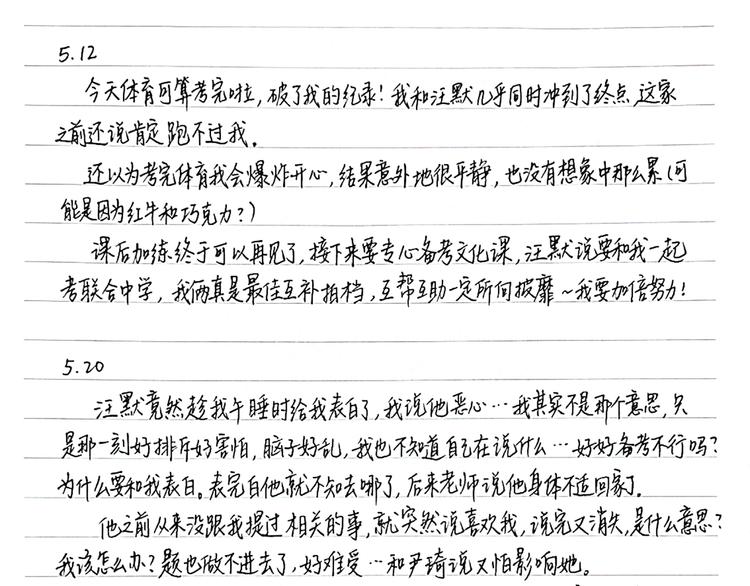 5.12
今天体育可算考完啦，破了我的纪录！我和汪默几乎同时冲到了终点，这家
之前还说肯定跑不过我。
还以为考完体育我会爆炸开心，结果意外地很平静，也没有想象中那么累（可
能是因为红牛和巧克力？）
课后加练终于可以再见了，接下来要专心备考文化课，汪默说要和我一起
考联合中学，我俩真是最佳互补拍档，互帮互助一定所向披靡～我要加倍努力！
5.20
汪默竟然趁我午睡时给我表白了，我说他恶心…我其实不是那个意思，只
是那一刻好排斥好害怕，脑子好乱，我也不知道自己在说什么…好好备考不行吗？
为什么要和我表白。表完白他就不知去哪了，后来老师说他身体不适回家了。
他之前从来没跟我提过相关的事，就突然说喜欢我，说完又消失，是什么意思？
我该怎么办？题也做不进去了，好难受…和尹琦说又怕影响她。